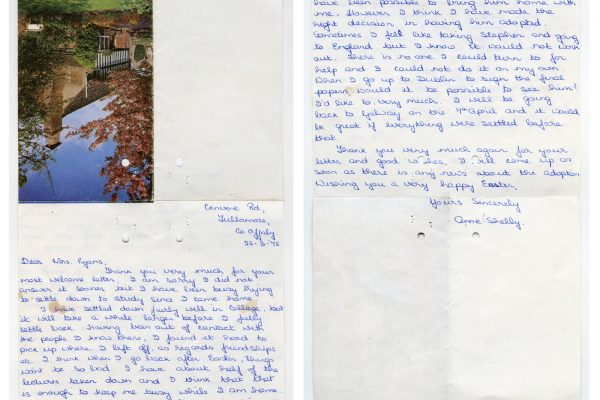 Convent Rd,
Tullamore,
Co. Offaly
25-3-'75
Dear Mrs. Ryans,
Thank you very much for your
most welcome letter. I am sorry I did not
answer it sooner but I have been busy trying
to settle down to study since I came home.
I have settled down fairly well in College, but
it will take a while longer before I fully
settle back. Having been out of contact with
the people I know there, I found it hard to
pick up where I left off as regards friendships
etc. I think when I go back after Easter, things
wont be so bad. I have about half of the
lectures taken down and I think that that
is enough to keep me busy while I am home.
have been possible to bring him home with
me. However I think I have made the
right decision in having him adopted.
Sometimes I feel like taking Stephen and going
to England but I know it would not work
out. There is no one I could turn to for
help and I could not do it on my own.
When I go up to Dublin to sign the final
papers, would it be possible to see him?
I'd like to, very much. I will be going
back to Galway on the 4th April and it would
be great if everything were settled before
that.
Thank you very much again for your
letter and good wishes. I will come up as
soon as there is any news about the adoption
Wishing you a very happy Easter,
Yours Sincerely
Anne Shelly